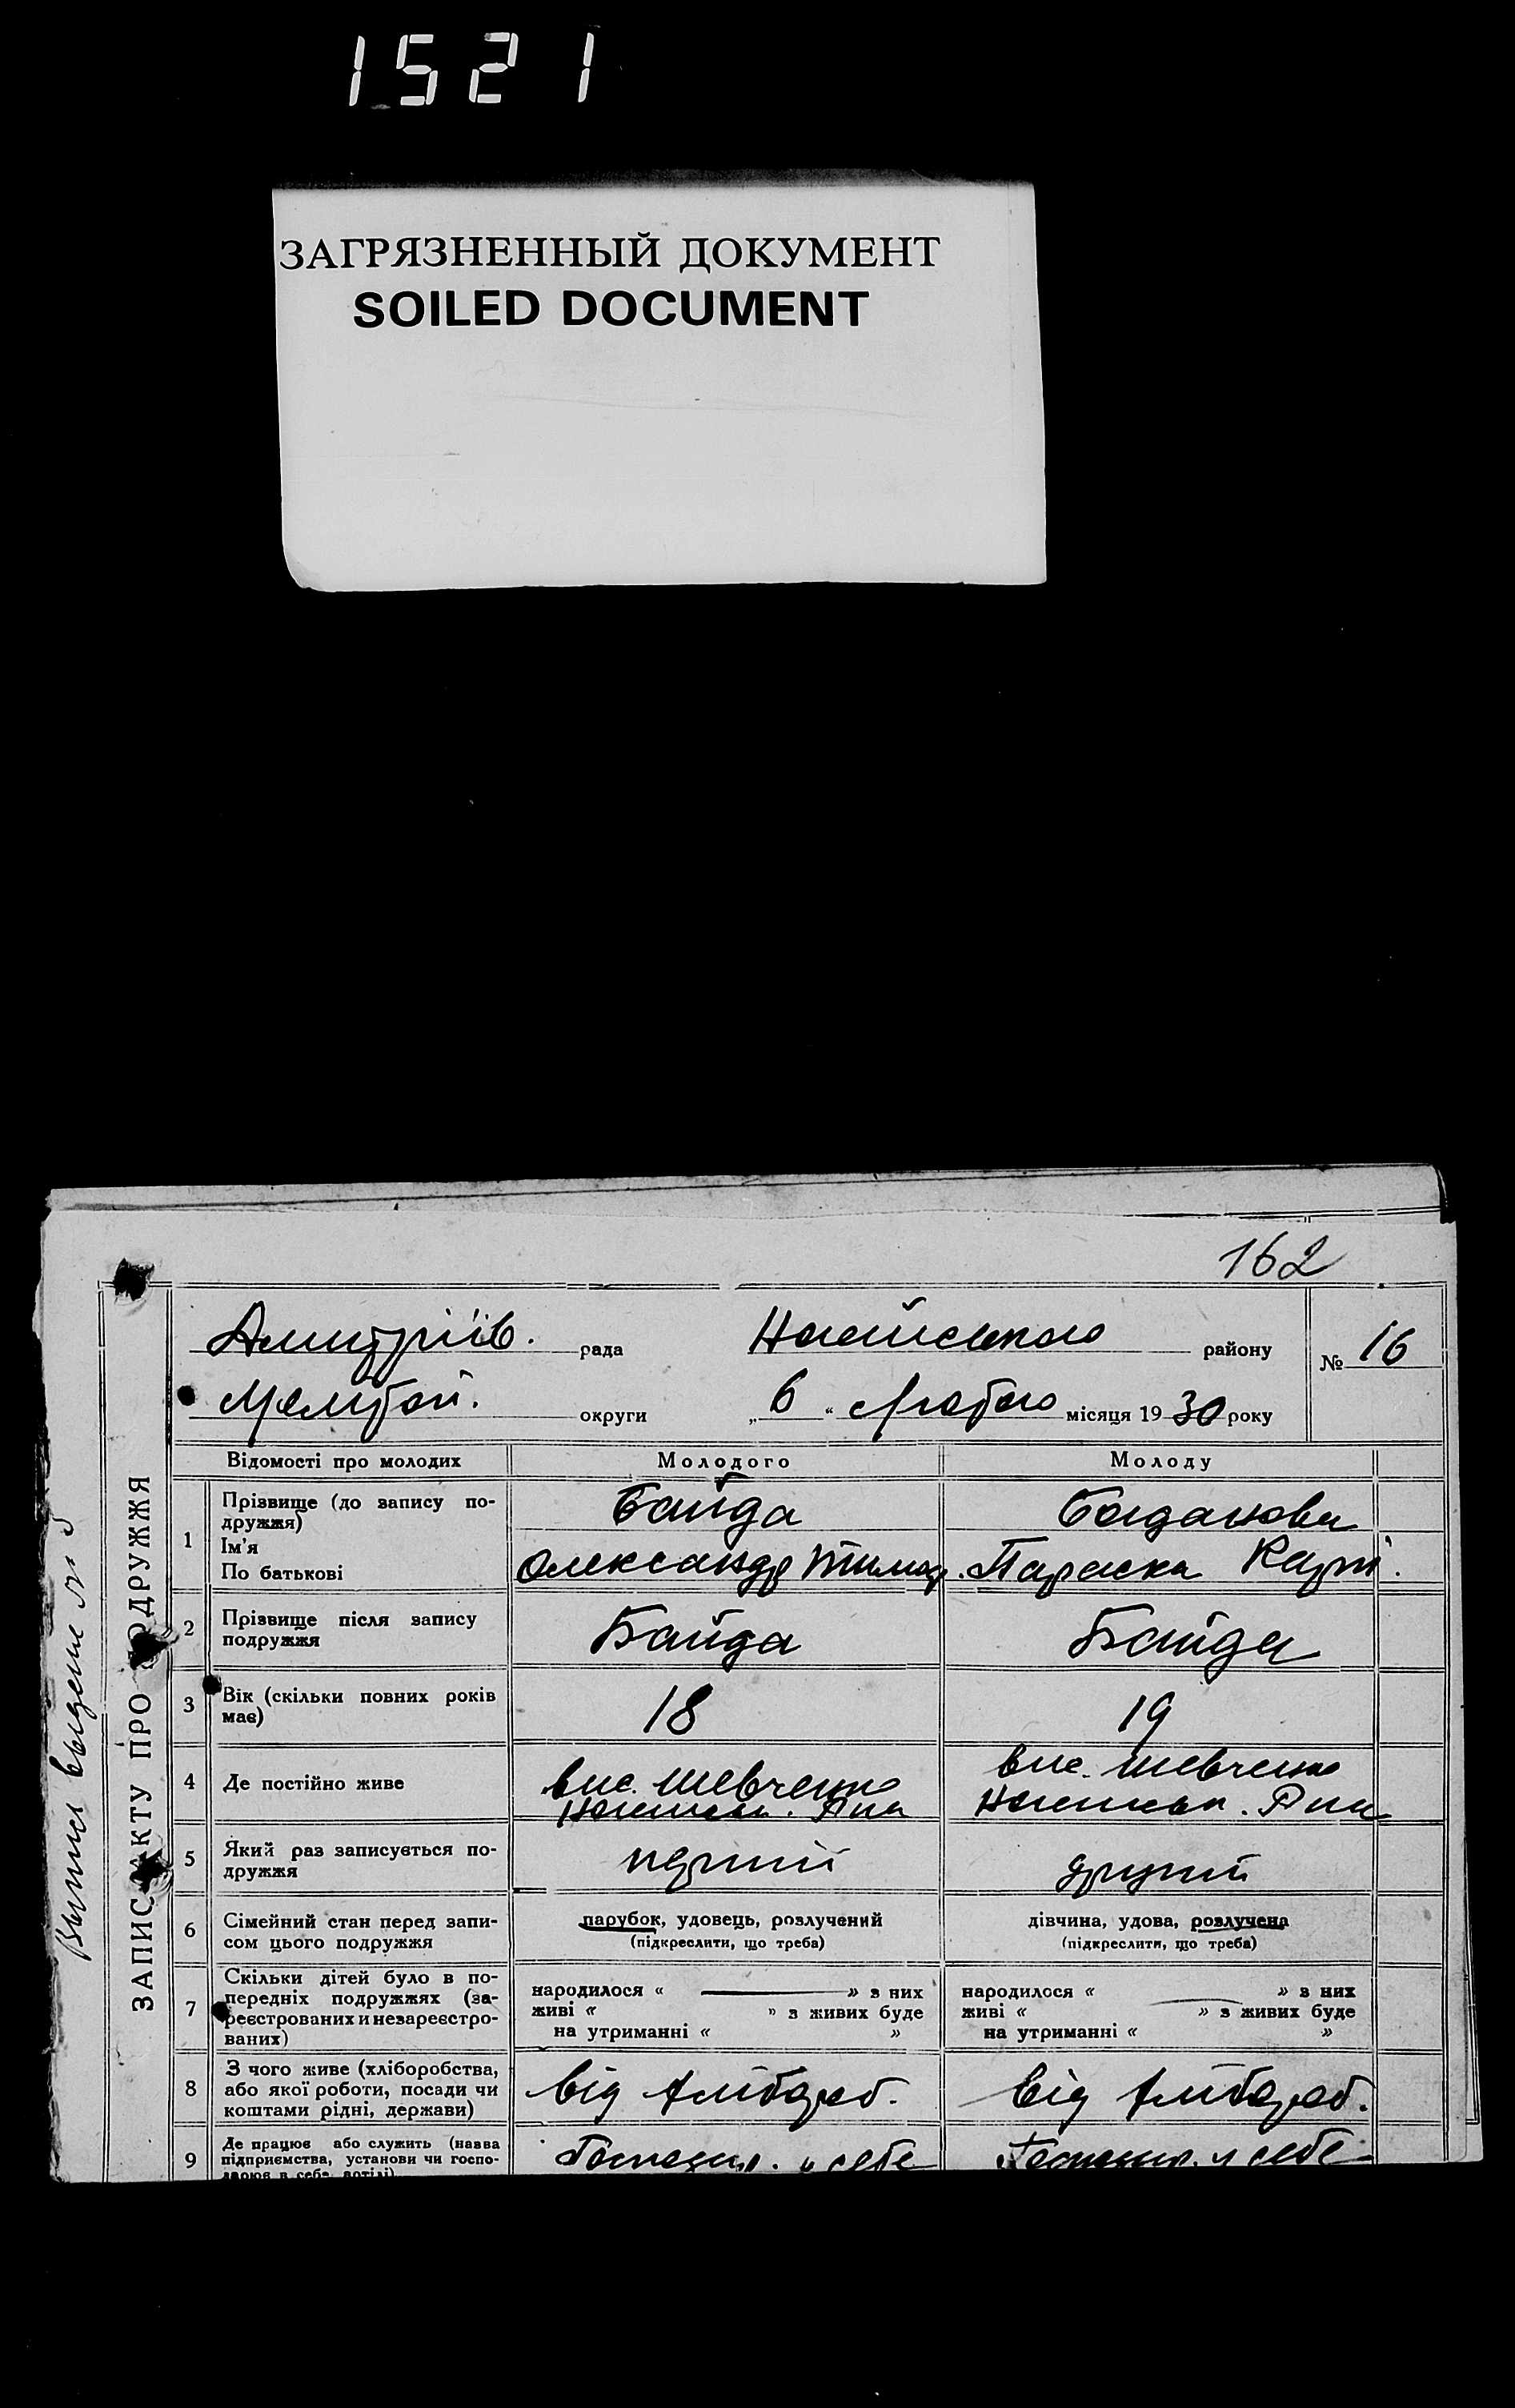 1521
ЗАГРЯЗНЕННЫЙ ДОКУМЕНТ
SOILED DOCUMENT
162
Дмитріїв. рада Ногайського району № 16
Мелітоп. округи „6“ Лютого місяця 1930 року
ЗАПИС АКТУ ПРО ПОДРУЖЖЯ
Відомості про молодих Молодого Молоду
1 Прізвище (до запису по-
дружжя) Байда Богданова
Ім'я
По батькові Олександр Тимоф. Параска Карп.
2 Прізвище після запису
подружжя Байда Байда
3 Вік (скільки повних років
має) 18 19
4 Де постійно живе вис. Шевченко вис. Шевченко
Ногайськ. Р-на Ногайськ. Р-на
5 Який раз записується по-
дружжя перший другий
6 Сімейний стан перед запи-
сом цього подружжя
парубок, удовець, розлучений дівчина, удова, розлучена
(підкреслити, що треба) (підкреслити, що треба)
7 Скільки дітей було в по-
передніх подружжях (за-
реєстрованих и незареєстро-
ваних)
народилося « » з них народилося « » з них
живі « » з живих буде живі « » з живих буде
на утриманні « » на утриманні « »
8 З чого живе (хліборобства,
або якої роботи, посади чи
коштами рідні, держави)
від хлібороб. від хлібороб.
9 Де працює або служить (назва
підприємства, установи чи госпо-
дарює в себе, артілі)
Господар. в себе Господар. в себе